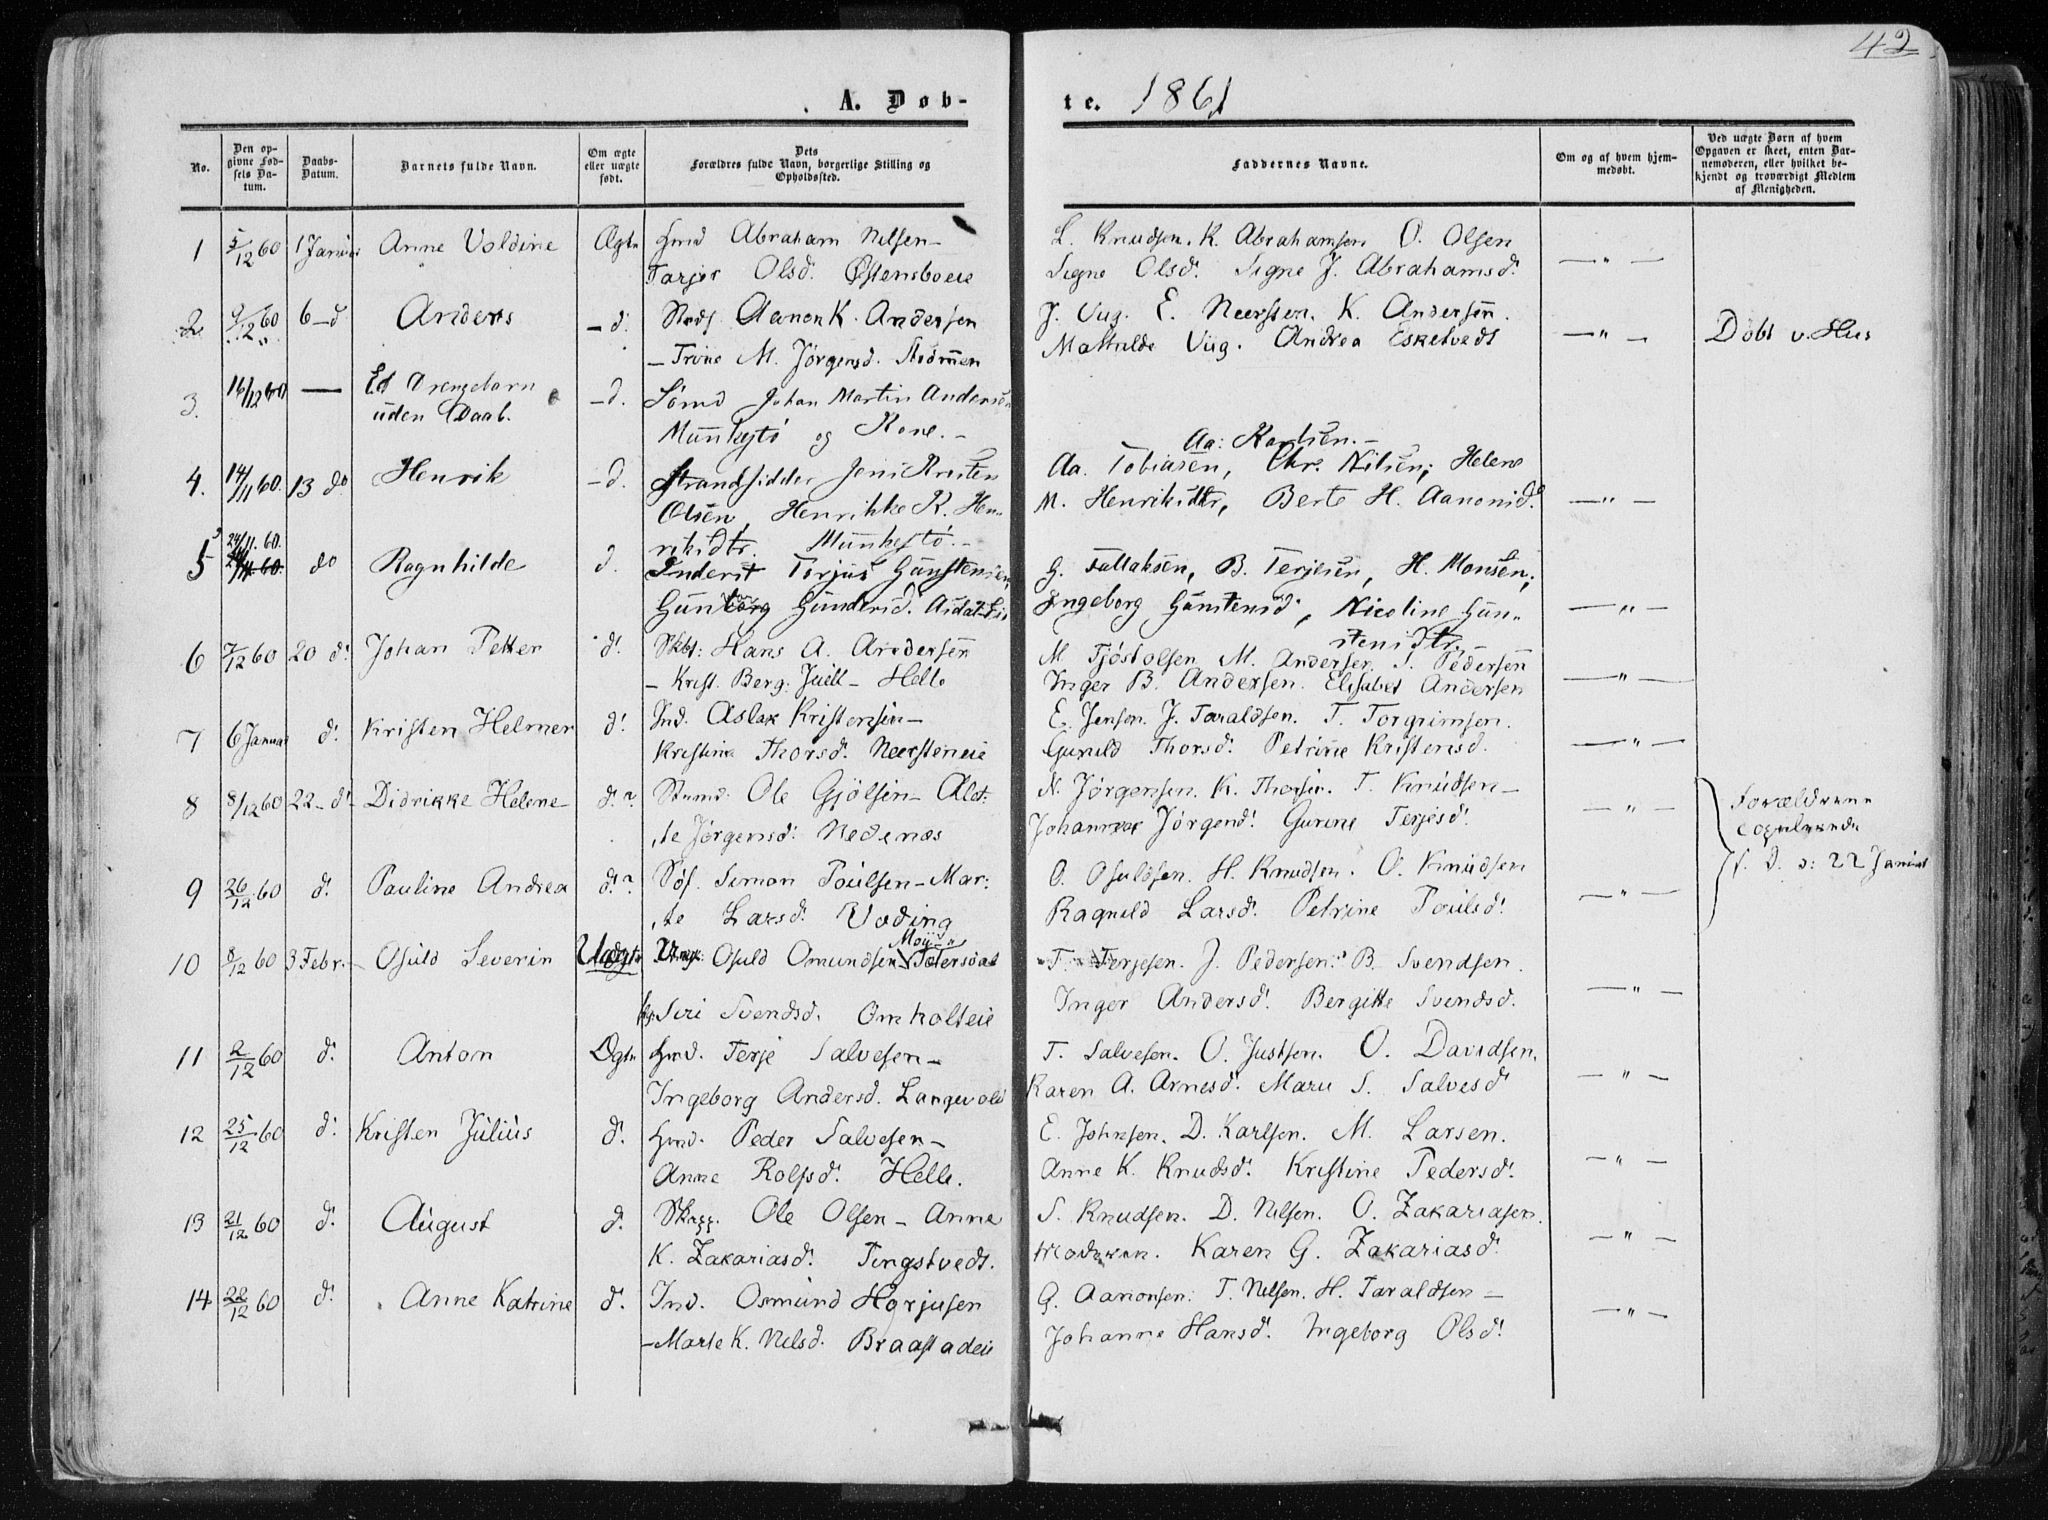 42
A. Døb-
te. 1861
No.
Den op-
givne Fød-
sels Da-
tum.
Daabs-
Datum.
Barnets fulde Navn.
Om ægte
eller uægte
født.
Dets
Forældres fulde Navn, borgerlige Stilling og
Opholdssted.
Faddernes Navne.
Om og af hvem hjem-
medøbt.
Ved uægte Børn af hvem
Opgaven er skeet, enten Bar-
nemoderen, eller hvilket be-
kjendt og troværdigt Medlem
af Menigheden.
1 5/12 60 1 Januar Anne Voldine Ægte Gmd Abraham Nilsen-
Tarjer Olsd. Østensboeie
L. Knudsen. K. Abrahamsen O. Olsen
Signe Olsd. Signe J. Abrahamsd. —"—
2 9/12 60 6 - d Anders - d. Aanon K. Andersen
- Trine M. Jörgensd.
J. Vug. E. Neersten. K. Andersen.
Mathilde Vüg. Andrea Eskelvedt —"— Döbt v. Hus
3. 16/12 60 — Et Drengebarn
uden Daab. - d. Sömd Johan Martin Andersen
Munkejtö og Kone. -
4. 14/11 60. 13 do Henrik - d. Strandsidder Jens Kristen
Olsen, Henrikke K. Hen-
riksdtr. Münkejtö. -
Aa: Karlsen. -
Aa. Tobiasen, Chr. Nilsen; Helene
M. Henriksdtr, Berte H. Aanonsd. —"—
5 24/11. 60. do Ragnhilde d. Inderst Torjus Günstensen,
Günborg Gündersd.
G. Tallaksen, B. Terjesen, H. Monsen;
Ingeborg Günstensd, Nicoline Gün-
stensdtr. —"—
6 7/12 60 20 d. Johan Petter d. Skbt: Hans A. Andersen
- Krist. Berg. Juell - Helle
M. Tjöstolsen M. Andersen S. Pedersen
Inger B. Andersen. Elisabet Andersen —"—
7 6 Januar d. Kristen Helmer d. Ind. Aslak Kristensen-
Kristine Thorsd. Neersteneie
E. Jensen. J. Taraldsen. T. Torgrimsen.
Gunild Thorsd. Petrine Kristensd. —"—
8 8/12 60 22 - d. Didrikke Helene d. Ole Gjölsen - Alet-
te Jörgensd. Nedenæs
N. Jörgensen. K. Thorsen. T. Knudsen-
Johanne Jörgend. Gurine Terjesd. —"— Forældrene
copulerede
22 Januar
9 26/12 60 d. Pauline Andrea d. Söf. Simon Poulsen - Mar-
te Larsd. Vœding
O. Osuldsen. H. Knudsen. O. Knudsen
Ragnild Larsd. Petrine Poulsd. —"—
10 8/12 60 3 Febr. - Osuld Severin Uægte Ungk: Osuld Omundsen
Siri Svendsd. Omholteie
T. Terjesen. J. Pedersen. B. Svendsen.
Inger Andersd. Bergitte Svendsd. —"—
11 2/12 60 d. Anton Ægte Gmd. Terje Salvesen-
Ingeborg Andersd. Langevold
T. Salvesen. O. Justsen. O. Davidsen.
Karen A. Arnesd. Maru S. Salvesd —"—
12 25/12 60 d. Kristen Julius d. Gmd. Peder Salvesen-
Anne Rolfsd. Helle.
E. Johnsen. D. Karlsen. M. Larsen.
Anne K. Knudsd. Kristine Pedersd. —"—
13 21/12 60 d. August d. Ole Olsen - Anne
K. Zakariasd. Tingstvedt.
S. Knudsen. D. Nilsen. O. Zakariasen.
Moderen. Karen G. Zakariasd. —"—
14 22/12 60 d. Anne Katrine d. Ind. Osmund Herjusen
- Marte K. Nilsd. Braastadeie
G. Aanonsen. T. Nilsen. H. Taraldsen-
Johanne Hansd. Ingeborg Olsd. —"—